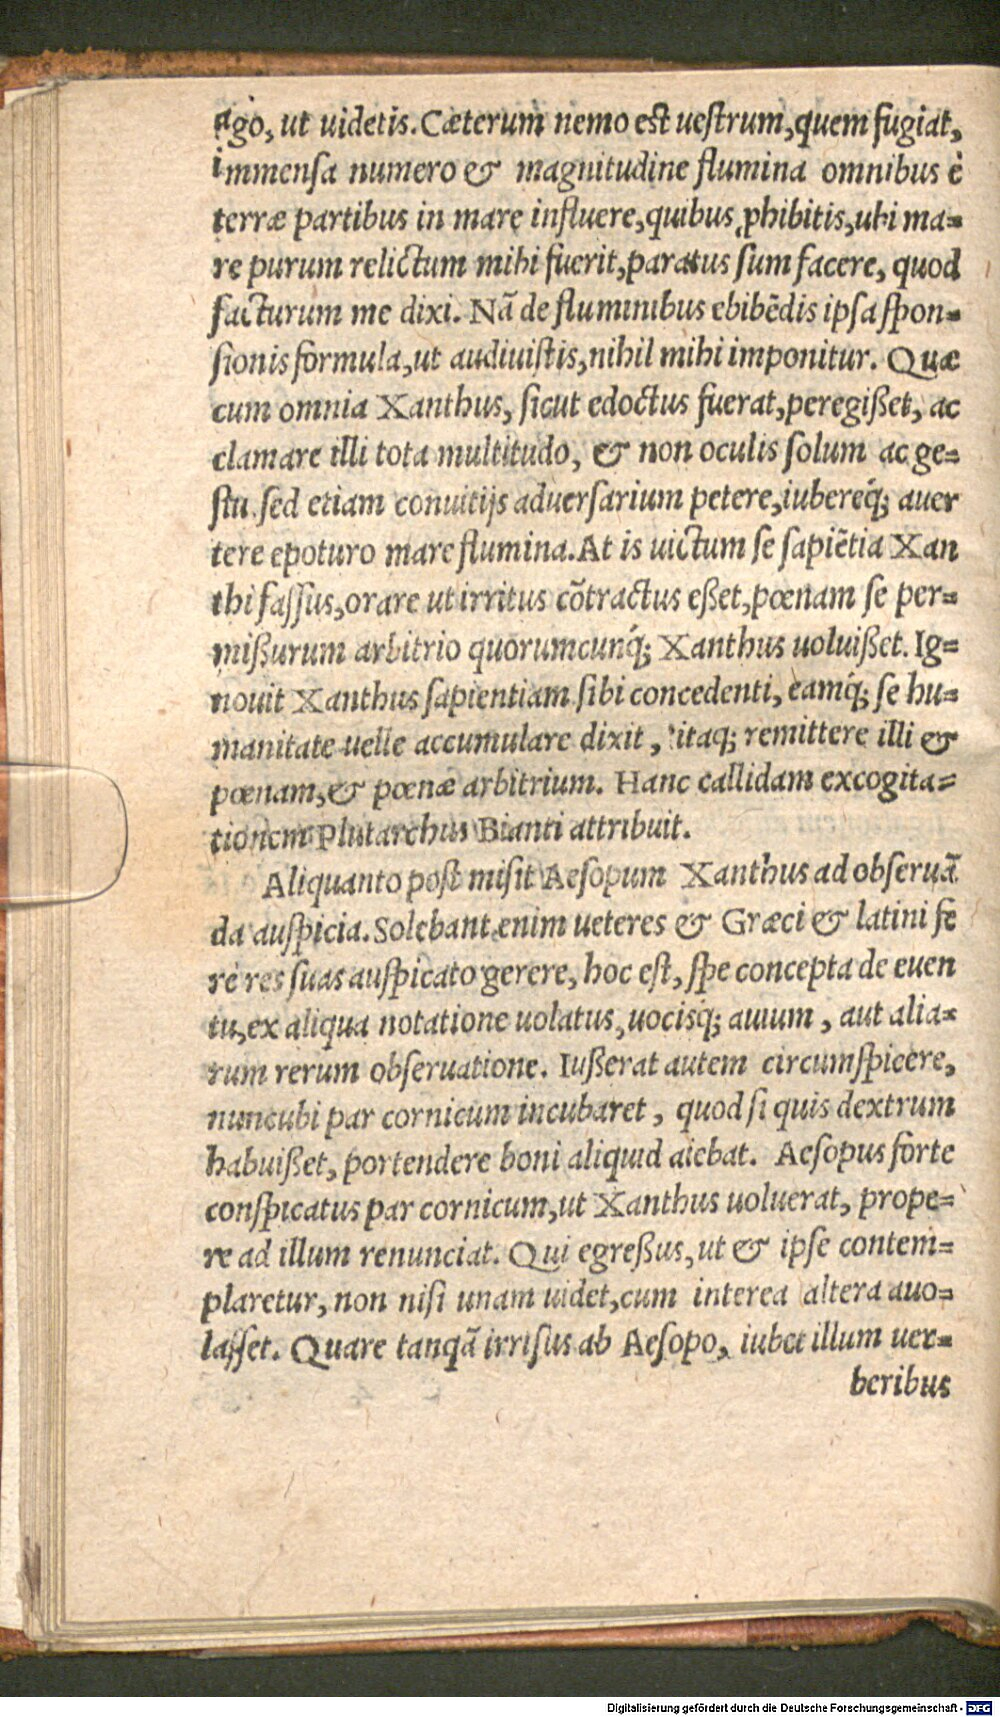 ago, ut uidetis. Cæterum nemo est uestrum, quem fugiat,
immensa numero & magnitudine flumina omnibus è
terræ partibus in mare influere, quibus ꝓhibitis, ubi ma=
re purum relictum mihi fuerit, paratus sum facere, quod
facturum me dixi. Nã de fluminibus ebibẽdis ipsa spon=
sionis formula, ut audiuistis, nihil mihi imponitur. Quæ
cum omnia Xanthus, sicut edoctus fuerat, peregißet, ac
clamare illi tota multitudo, & non oculis solum ac ge=
stu sed etiam conuitijs aduersarium petere, iubereq́; auer
tere epoturo mare flumina. At is uictum se sapiẽtia Xan
thi fassus, orare ut irritus cõtractus eßet, pœnam se per=
mißurum arbitrio quorumcunq́; Xanthus uoluißet. Ig=
nouit Xanthus sapientiam sibi concedenti, eamq́; se hu=
manitate uelle accumulare dixit, itaq; remittere illi &
pœnam, & pœnæ arbitrium. Hanc callidam excogita=
tionem Plutarchus Bianti attribuit.
Aliquanto post misit Aesopum Xanthus ad obseruã
da auspicia. Solebant enim ueteres & Græci & latini fe
re res suas auspicato gerere, hoc est, spe concepta de euen
tu, ex aliqua notatione uolatus, uocisq́; auium, aut alia=
rum rerum obseruatione. Iußerat autem circumspicere,
nuncubi par cornicum incubaret, quod si quis dextrum
habuißet, portendere boni aliquid aiebat. Aesopus forte
conspicatus par cornicum, ut Xanthus uoluerat, prope=
re ad illum renunciat. Qui egreßus, ut & ipse contem=
plaretur, non nisi unam uidet, cum interea altera auo=
lasset. Quare tanq̃ irrisus ab Aesopo, iubet illum uer=
beribus
Digitalisierung gefördert durch die Deutsche Forschungsgemeinschaft - DFG